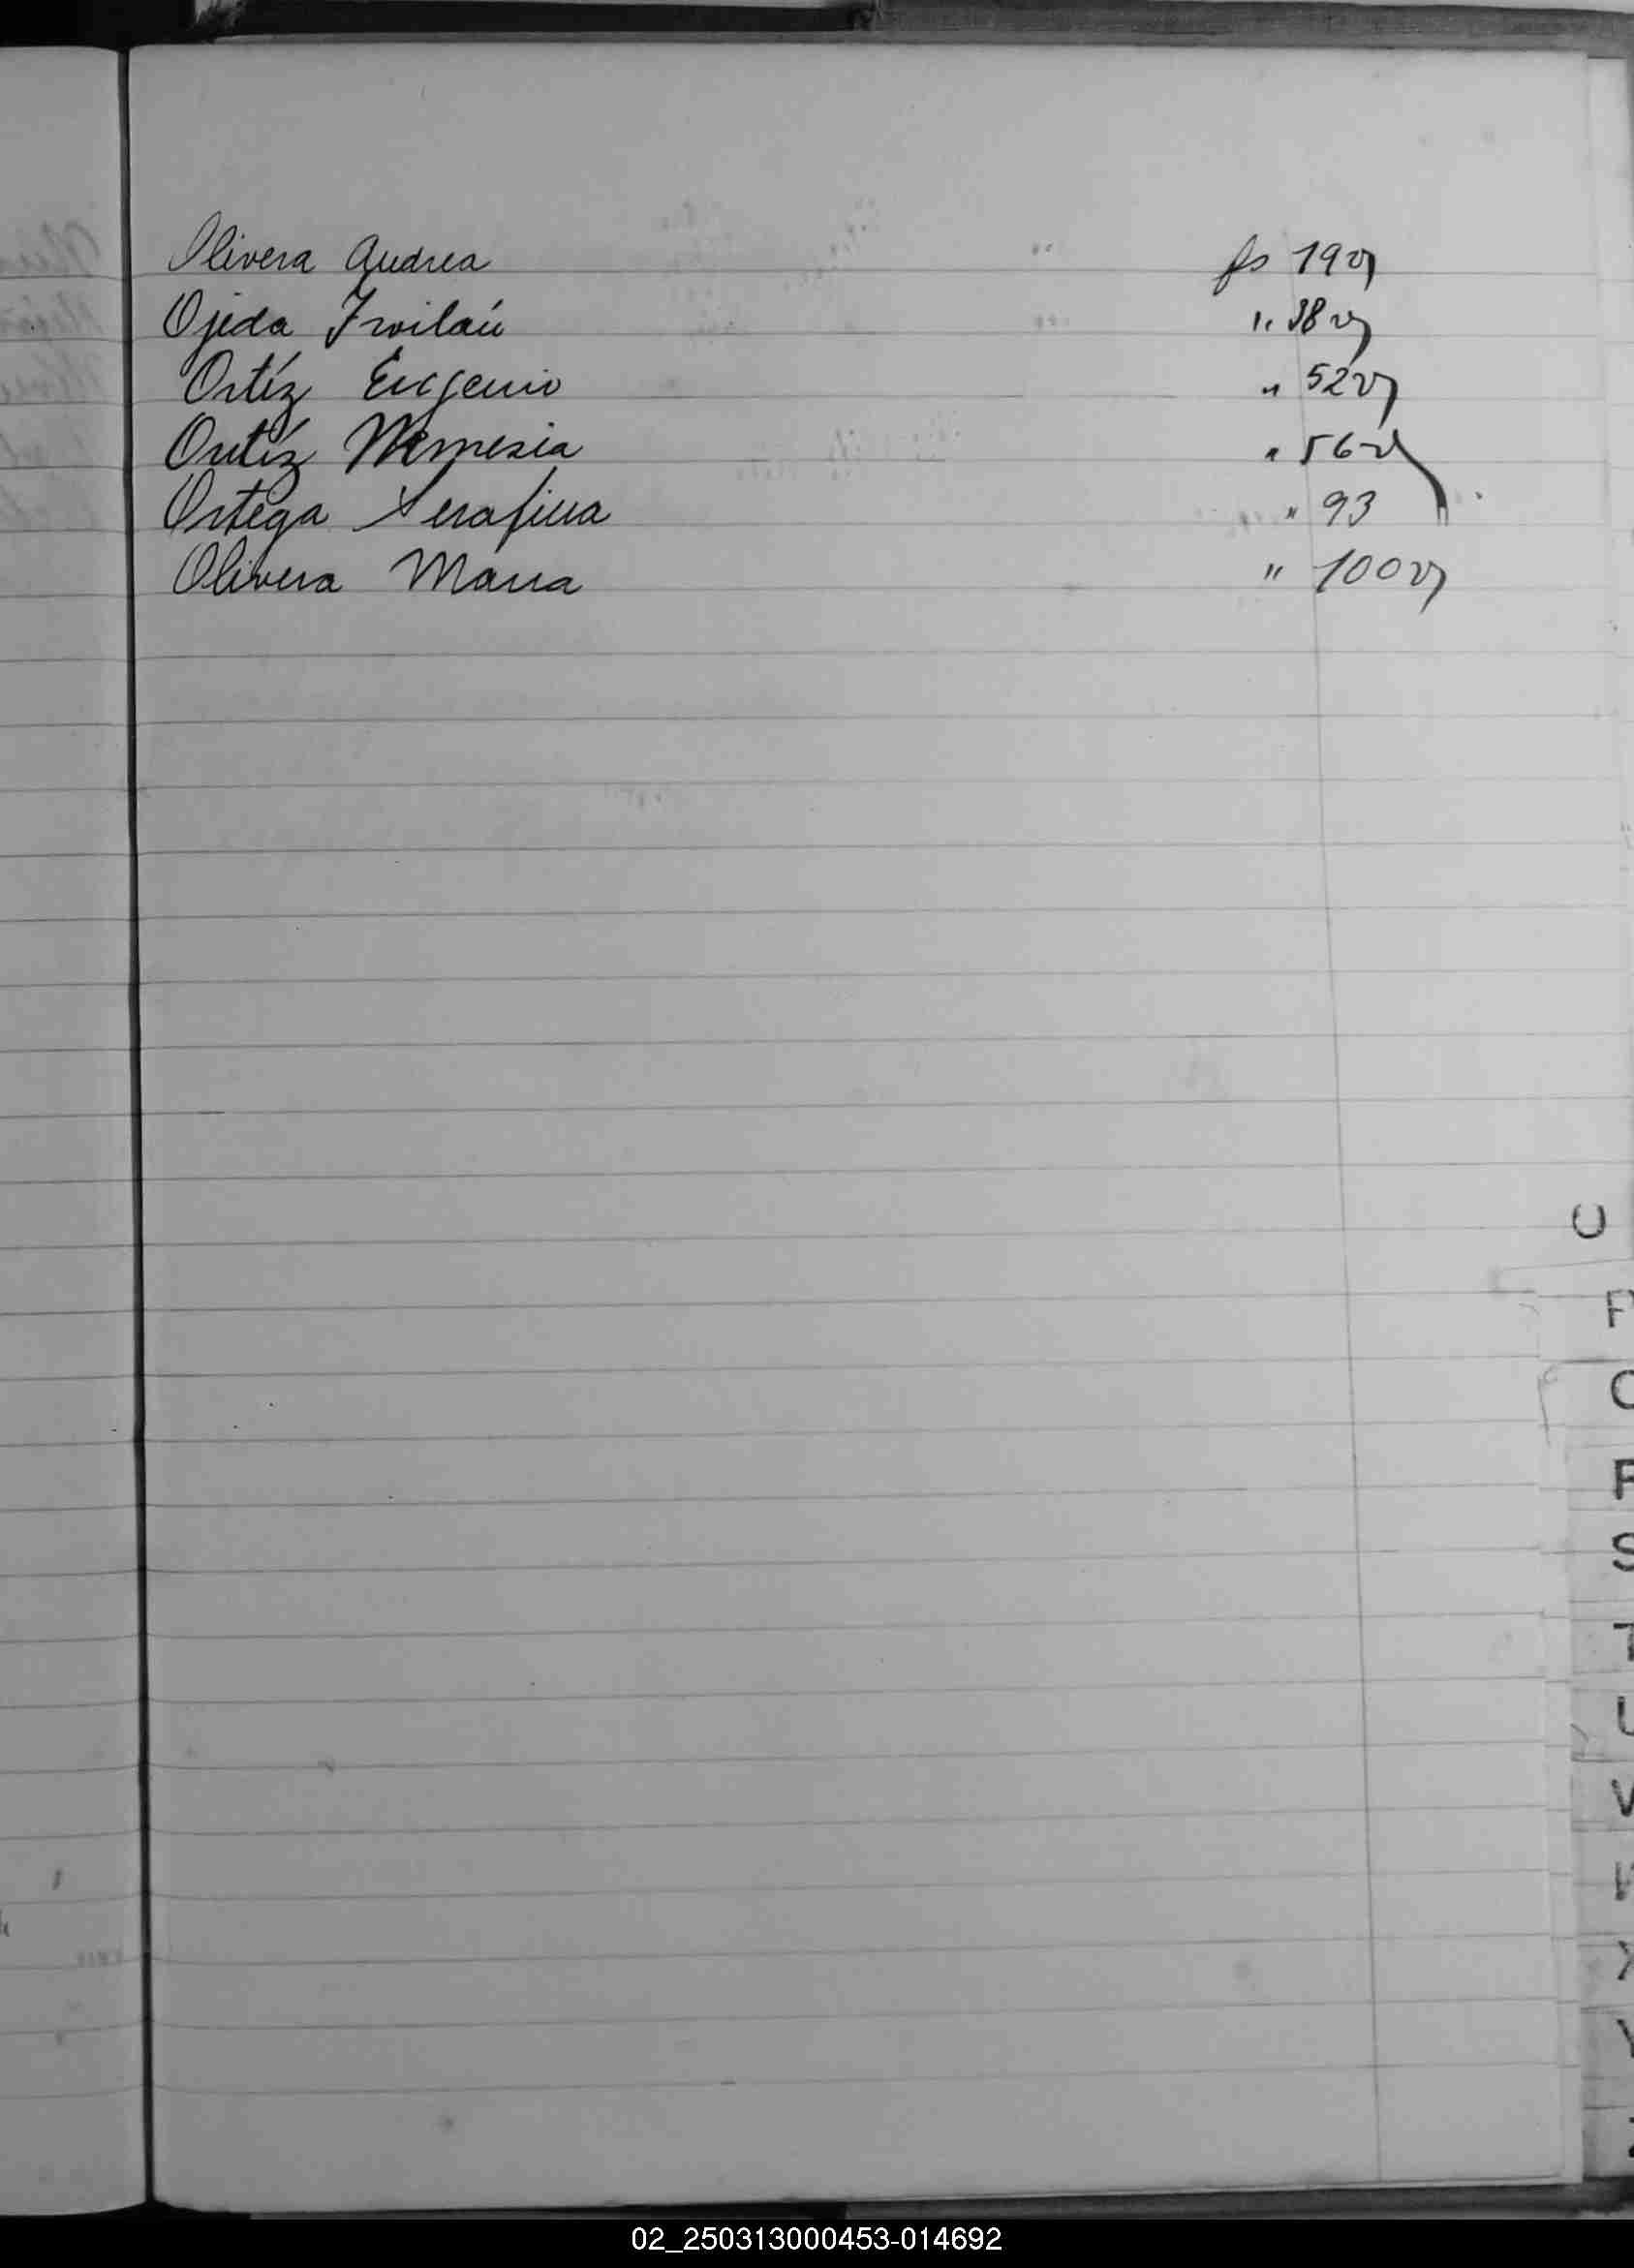 Olivera Andrea fs 19 v
Ojeda Froilán " 38 v
Ortíz Eugenio " 52 v
Ortíz Nemesia " 56 v
Ortega Serafina " 93
Olivera Maria " 100 v
O
P
Q
R
S
T
U
V
X
Y
Z
02_250313000453-014692